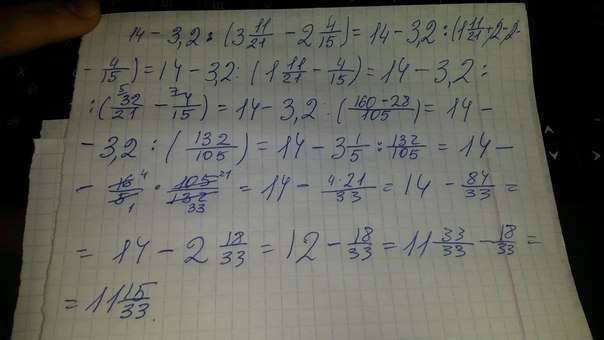 14 - 3,2 : (3 11/21 - 2 4/15) = 14 - 3,2 : (1 11/21 + 2 - 2 -
- 4/15) = 14 - 3,2 : (1 11/21 - 4/15) = 14 - 3,2 :
: (5 32/21 - 7 4/15) = 14 - 3,2 : (160-28/105) = 14 -
- 3,2 : (132/105) = 14 - 3 1/5 : 132/105 = 14 -
- 16 4/5 1 · 105 21/132 33 = 14 - 4·21/33 = 14 - 84/33 =
= 14 - 2 18/33 = 12 - 18/33 = 11 33/33 - 18/33 =
= 11 15/33.